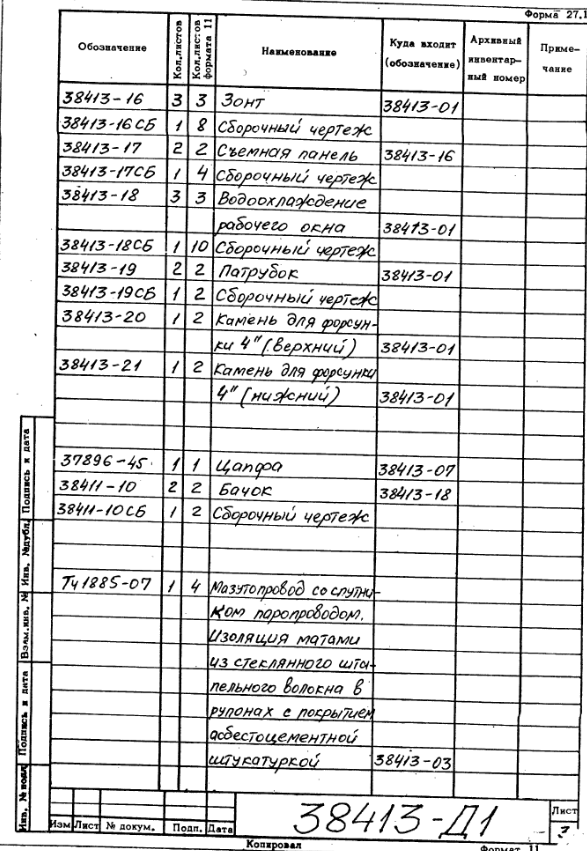 Форма 27.1
Обозначение Кол.листов Кол.листов формата 11 Наименование Куда входит (обозначение) Архивный инвентар-ный номер Приме-чание
38413-16 3 3 Зонт 38413-01
38413-16СБ 1 8 Сборочный чертеж
38413-17 2 2 Съемная панель 38413-16
38413-17СБ 1 4 Сборочный чертеж
38413-18 3 3 Водоохлаждение
рабочего окна 38413-01
38413-18СБ 1 10 Сборочный чертеж
38413-19 2 2 Патрубок 38413-01
38413-19СБ 1 2 Сборочный чертеж
38413-20 1 2 Камень для форсун-
ки 4" (верхний) 38413-01
38413-21 1 2 Камень для форсунки
4" (нижний) 38413-01
37896-45 1 1 Цапфа 38413-07
38411-10 2 2 Бачок 38413-18
38411-10СБ 1 2 Сборочный чертеж
Тч1885-07 1 4 Мазутопровод со спутни-
ком паропроводом.
Изоляция матами
из стеклянного шта-
пельного волокна в
рулонах с покрытием
асбестоцементной
штукатуркой 38413-03
Инв. № подл. Подпись и дата Взам.инв. № Инв. №дубл. Подпись и дата
Изм Лист № докум. Подп. Дата
38413-Д1
Лист
3
Копировал Формат 11